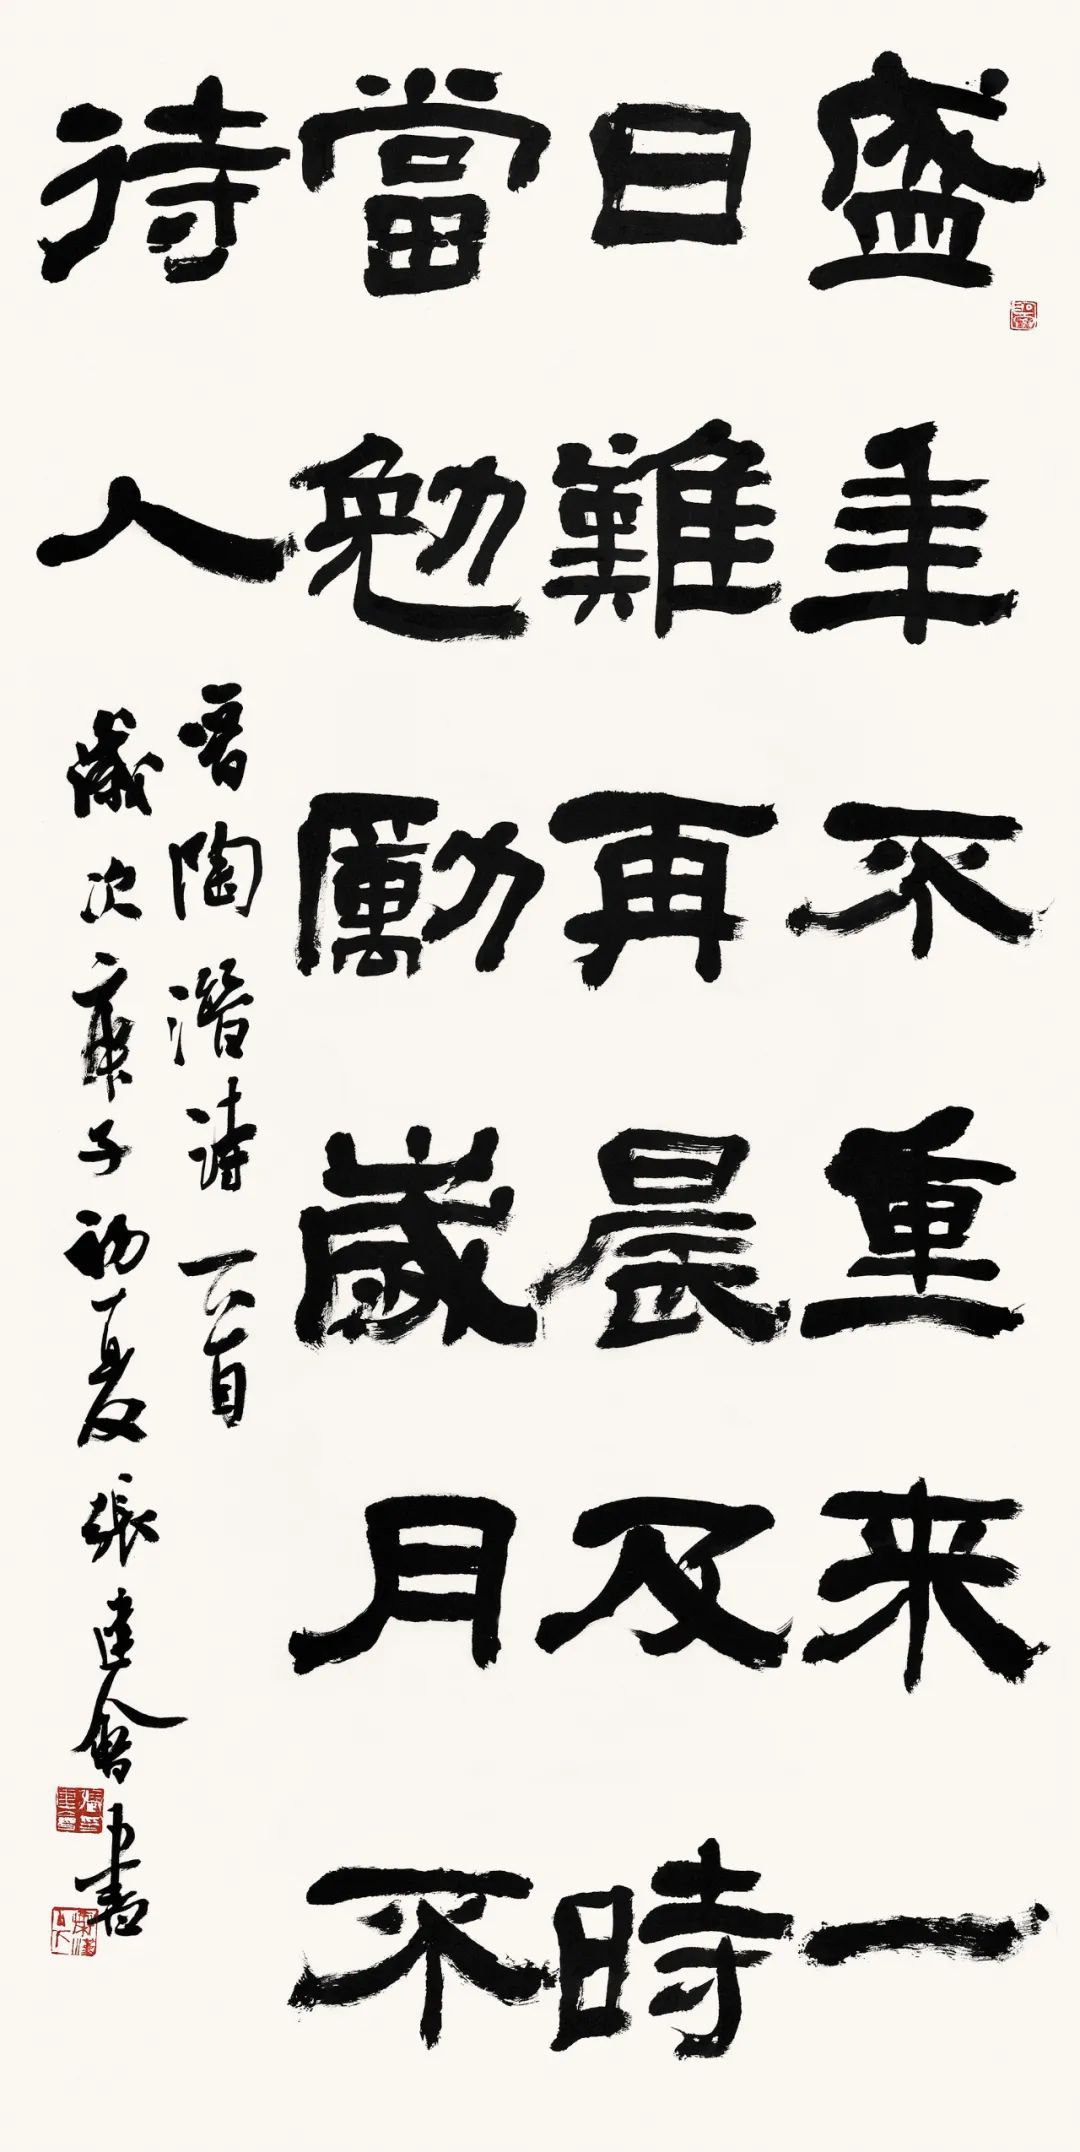 盛年不重来一
日難再晨及時
當勉勵歲月不
待人
晋陶潛詩一首
歲次庚子初夏張建會書